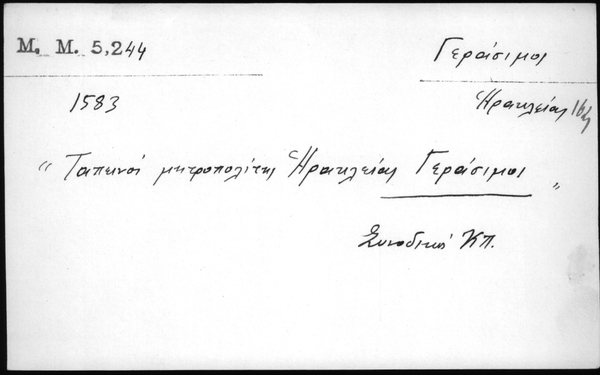 M. M. 5,244
Γεράσιμος
1583
Ἡρακλείας
„ Ταπεινός μητροπολίτης Ἡρακλείας Γεράσιμος „
Συνοδικό ΚΠ.